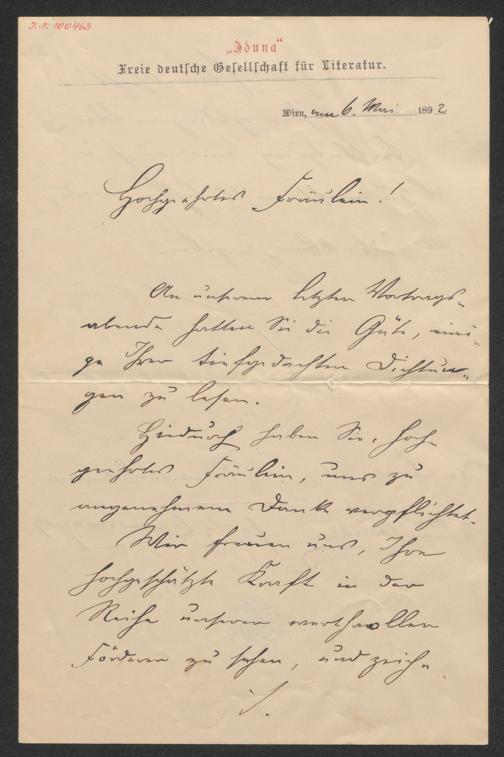 J.N. 100463
„Iduna“
Freie deutsche Gesellschaft für Literatur.
Wien, am 6. Mai 1892
Hochgeehrtes Fräulein!
An unserem letzten Vortrags-
abende hatten Sie die Güte, eini-
ge Ihrer tiefgedachten Dichtun-
gen zu lesen.
Hiedurch haben Sie, hoch-
geehrtes Fräulein, uns zu
angenehmem Danke verpflichtet.
Wir freuen uns, Ihre
hochgeschätzte Kraft in der
Reihe unserer werthvollen
Förderer zu sehen, und zeich-
./.